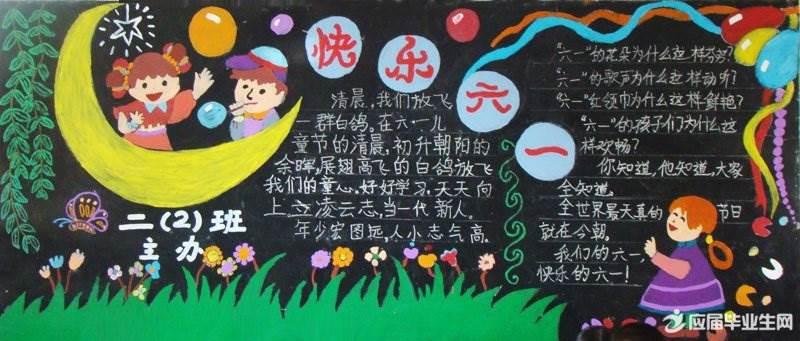 快乐六一
清晨,我们放飞
一群白鸽,在六一儿
童节的清晨,初升朝阳的
余晖,展翅高飞的白鸽放飞
我们的童心,好好学习,天天向
上,立凌云志,当一代新人,
年少宏图远,人小志气高.
二(2)班
主办
“六一”的花朵为什么这样芬芳?
“六一”的歌声为什么这样动听?
“六一”红领巾为什么这样鲜艳?
“六一”的孩子们为什么这
样欢畅?
你知道,他知道,大家
全知道.
全世界最天真的节日
就在今朝.
我们的六一,
快乐的六一!
应届毕业生网